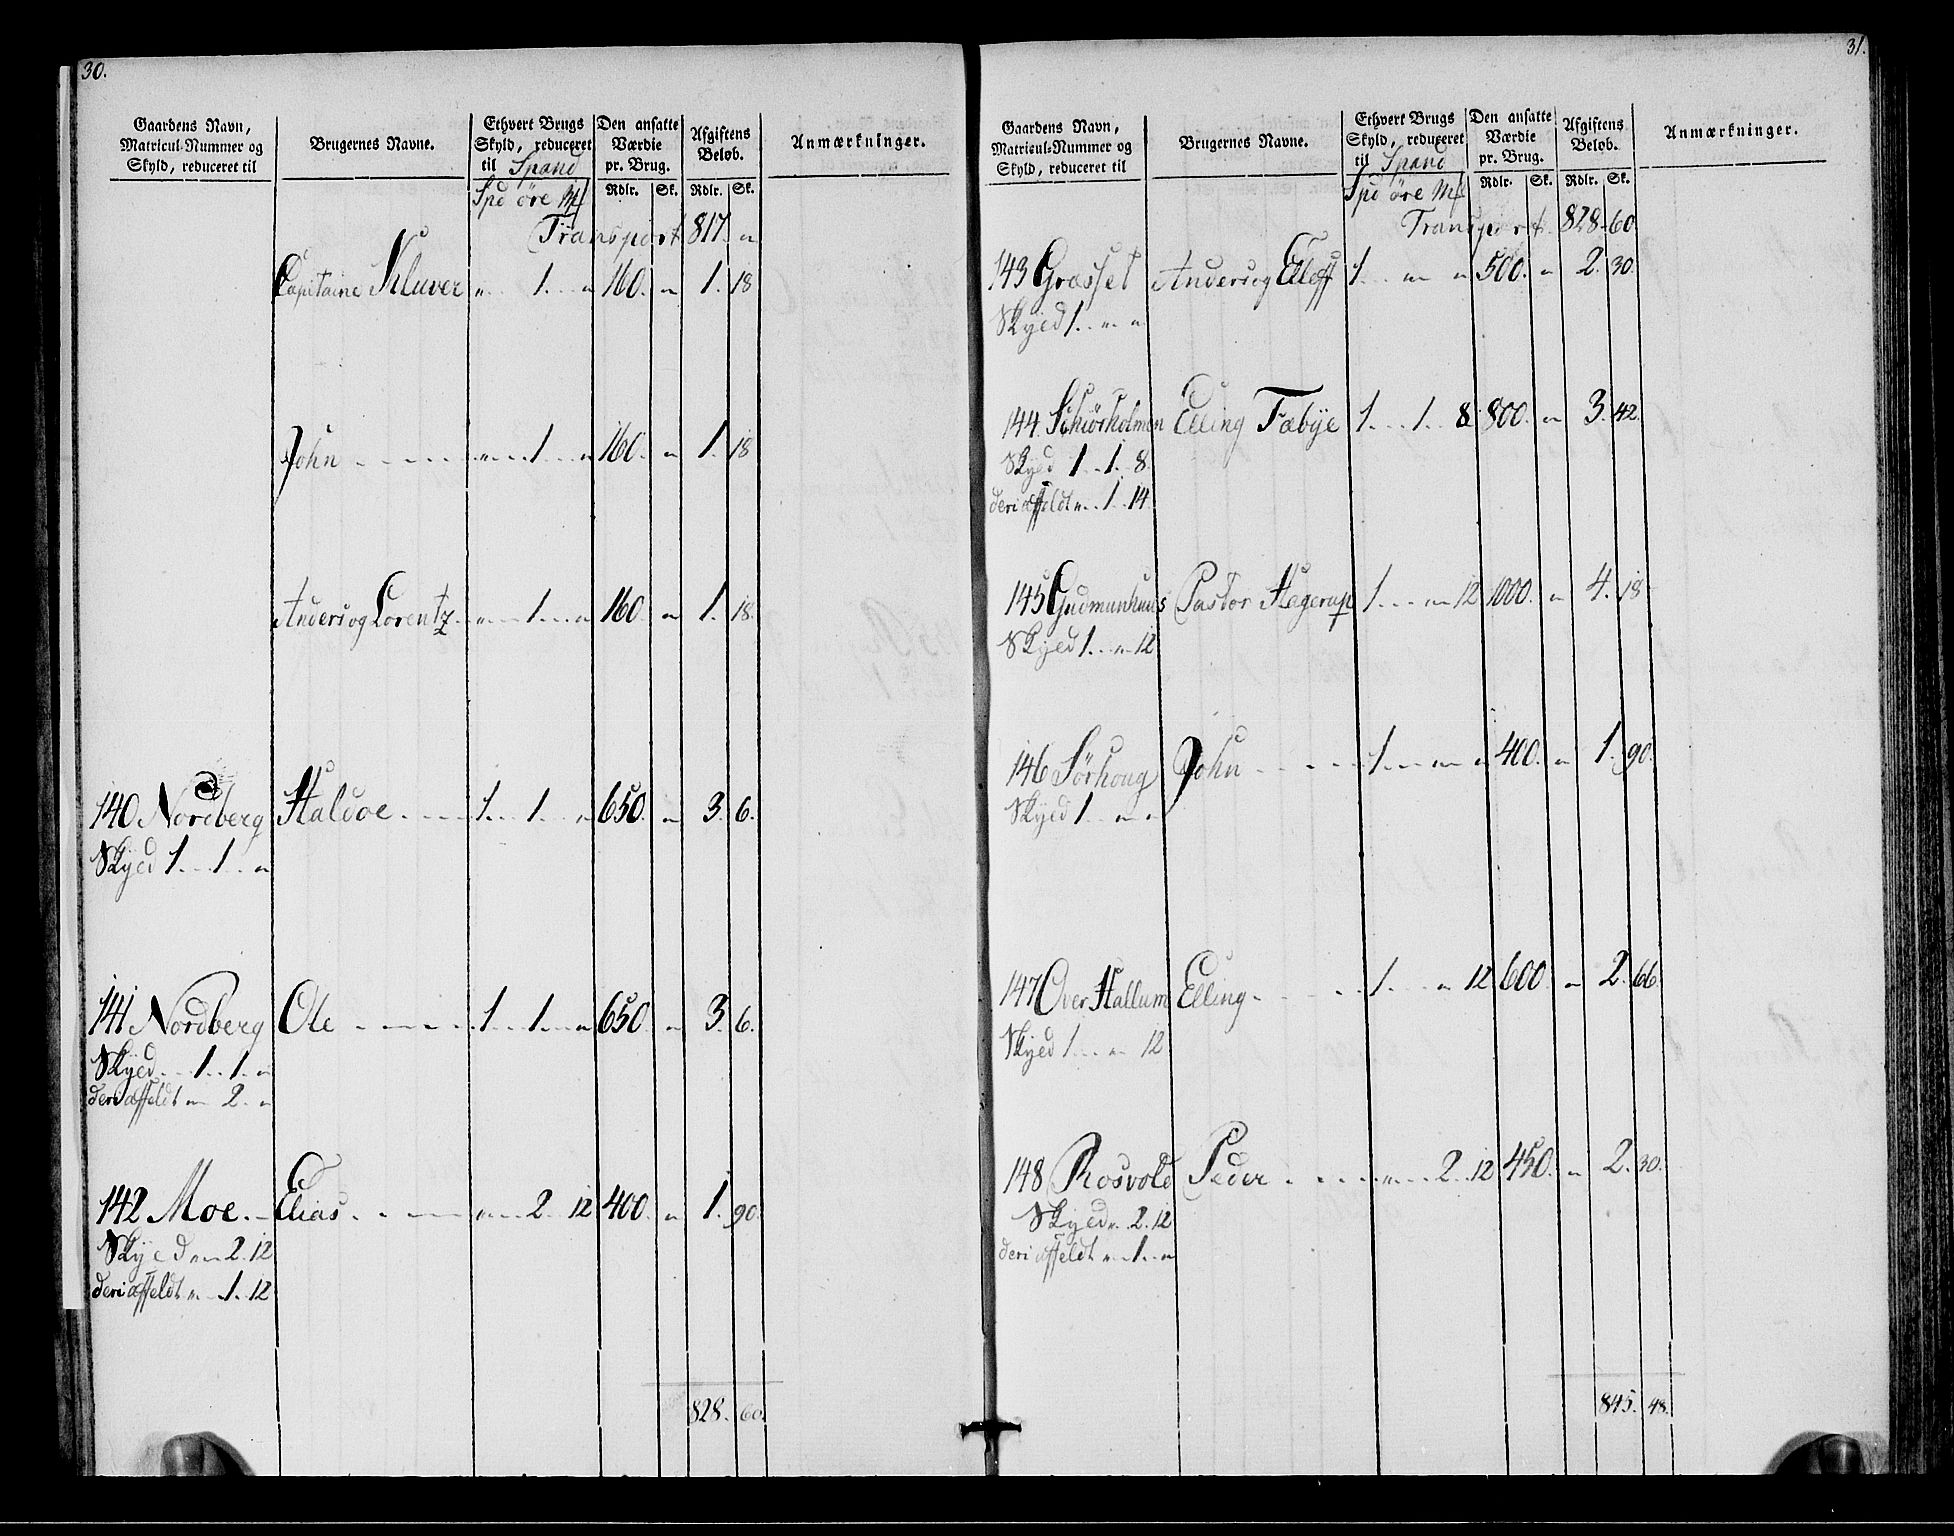 30.
Gaardens Navn, Matricul-Nummer og Skyld, reduceret til
Brugernes Navne.
Ethvert Brugs Skyld, reduceret til Spand
Den ansatte Værdie pr. Brug.
Afgiftens Beløb.
Anmærkninger.
Spd öre Mf Rdlr. Sk. Rdlr. Sk.
Transport 817. "
Capitaine Kluver " 1. " 160. " 1. 18
John " 1. " 160. " 1. 18
Anders og Lorentz " 1. " 160. " 1. 18.
140 Nordberg Haldoe 1. 1. " 650. " 3. 6.
Skyld 1. 1. "
141 Nordberg Ole 1. 1. " 650. " 3. 6.
Skyld 1. 1. "
deri affeldt " 2. "
142 Moe Elias " 2. 12 400. " 1. 90.
Skyld " 2. 12
deri affeldt " 1. 12
828. 60.
31.
Gaardens Navn, Matricul-Nummer og Skyld, reduceret til
Brugernes Navne.
Ethvert Brugs Skyld, reduceret til Spand
Den ansatte Værdie pr. Brug.
Afgiftens Beløb.
Anmærkninger.
Spd öre Mf Rdlr. Sk. Rdlr. Sk.
Transport. 828. 60.
143 Græsset Anders og Elloff 1. " " 500. " 2. 30.
Skyld 1. " "
144. Schiörholmen Elling Tæbye 1. 1. 8 800. " 3. 42.
Skyld 1. 1. 8.
deri affeldt " 1. 14.
145 Gudmunhuus Pastor Hagerup 1. " 12 1000. " 4. 18
Skyld 1. " 12
146 Sörhoug John 1. " " 400. " 1. 90.
Skyld 1. " "
147 Over Hallum Elling 1. " 12 600 " 2. 66.
Skyld 1. " 12
148 Rosvold Peder " 2. 12 450. " 2. 30.
Skyld " 2. 12
deri affeldt " 1. "
845. 48.